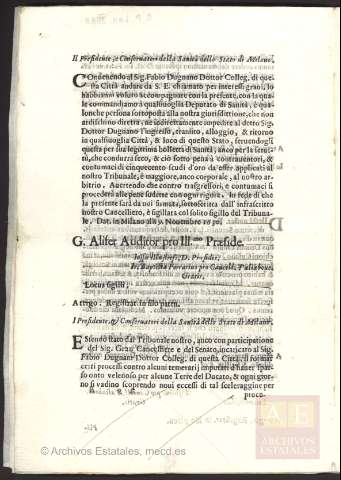 Il Presidente, e Conseruatori della Sanità dello Stato di Milano.
COnuenendo al Sig. Fabio Dugnano Dottor Colleg. di que-
sta Città andare da S. E. chiamato per interessi graui, lo
habbiamo voluto accompagnare con la presente, con la qua-
le commandiamo à qualsiuoglia Deputato di Sanità, è qua-
lonche persona sottoposta alla nostra giurisditione, che non
ardischino diretta, ne indirettamente impedire al detto Sig.
Dottor Dugnano l'ingresso, transito, alloggio, & ritorno
in qualsiuoglia Città, & loco di questo Stato, seruendogli
questa per sua legitima bolletta di Sanità, anco per la
che condurrà seco, & ciò sotto pena à contrauentori, &
contumaci di cinquecento scudi d'oro da esser applicati al
nostro Tribunale, è maggiore, anco corporale, al nostro ar-
bitrio. Auertendo che contro trasgressori, e contumaci si
procederà alle pene sudette con ogni rigore. In fede di che
la presente sarà da noi firmata, sottoscritta dall'infrascritto
nostro Cancelliero, è sigillata col solito sigillo del Tribuna-
le. Dat. in Milano alli 9. Nouembre 1630.
G. Alifer Auditor pro Ill.mo Præside.
Iussu Illustriss. D. Præsidis,
Io. Baptista Ferrarius pro Cancell. Pallabono.
Gratis.
Locus sigilli.
A tergo: Registrat. in filo
Il Presidente, & Conseruatori della Sanità dello Stato di Milano.
ESsendo stato dal Tribonale nostro, anco con participatione
del Sig. Gran Cancelliere e del Senato, incaricato al Sig.
Fabio Dugnano Dottor Colleg. di questa Città, il formar
certi processi contro alcuni temerarij imputati d'hauer spar-
so onto velenoso per alcune Terre del Ducato, & ogni gior-
no si vadino scoprendo noui eccessi di tal sceleraggine per
proce-
AE
ARCHIVOS
ESTATALES
© Archivos Estatales, mecd.es